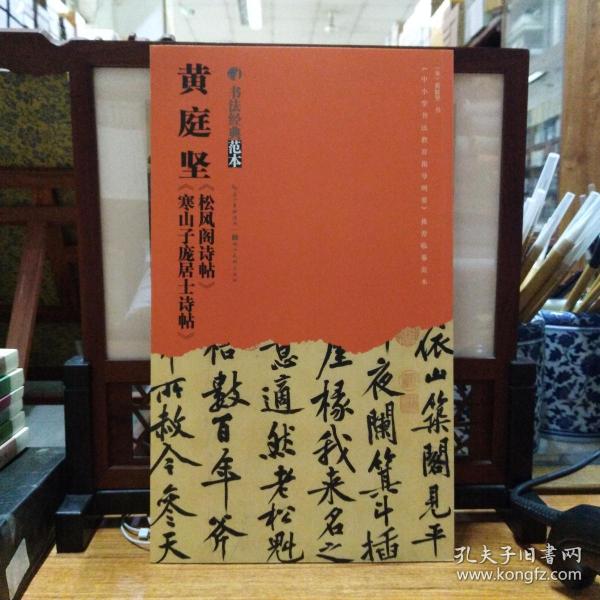 黄庭坚
《松风阁诗帖》
《寒山子庞居士诗帖》
书法经典范本
《中小学书法教育指导纲要》推荐临摹范本
依山筑阁见平
夜阑箕斗插
屋椽我来名之
意适然老松魁
梧数百年斧
斤所赦令参天
孔夫子旧书网
www.kongfz.com